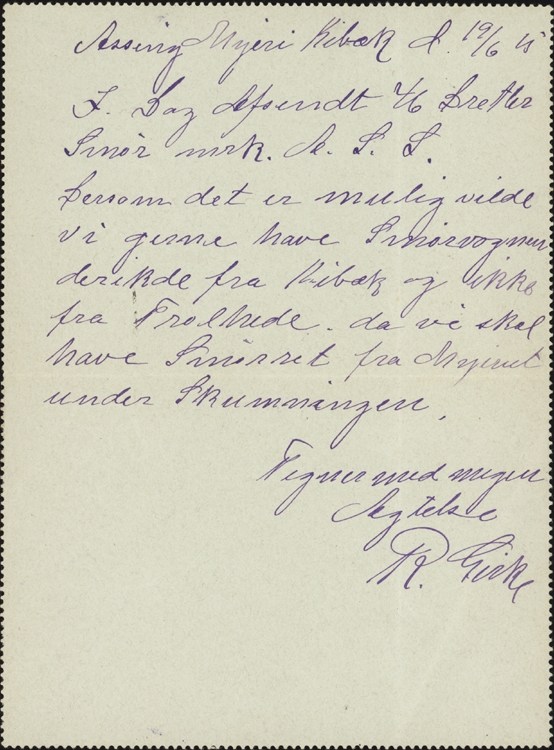 Assing Mejeri Kibæk d. 19/6 15
I. Dag Afsendt 46 Dretler
Smør mrk. A. S. S.
Dersom det er mulig vilde
vi gerne have Smørvognen
derikde fra Kibæk og ikke
fra Trolhede. da vi skal
have Smørret fra Mejeriet
under Skumningen.
Tegner med megen
Agtelse
R.